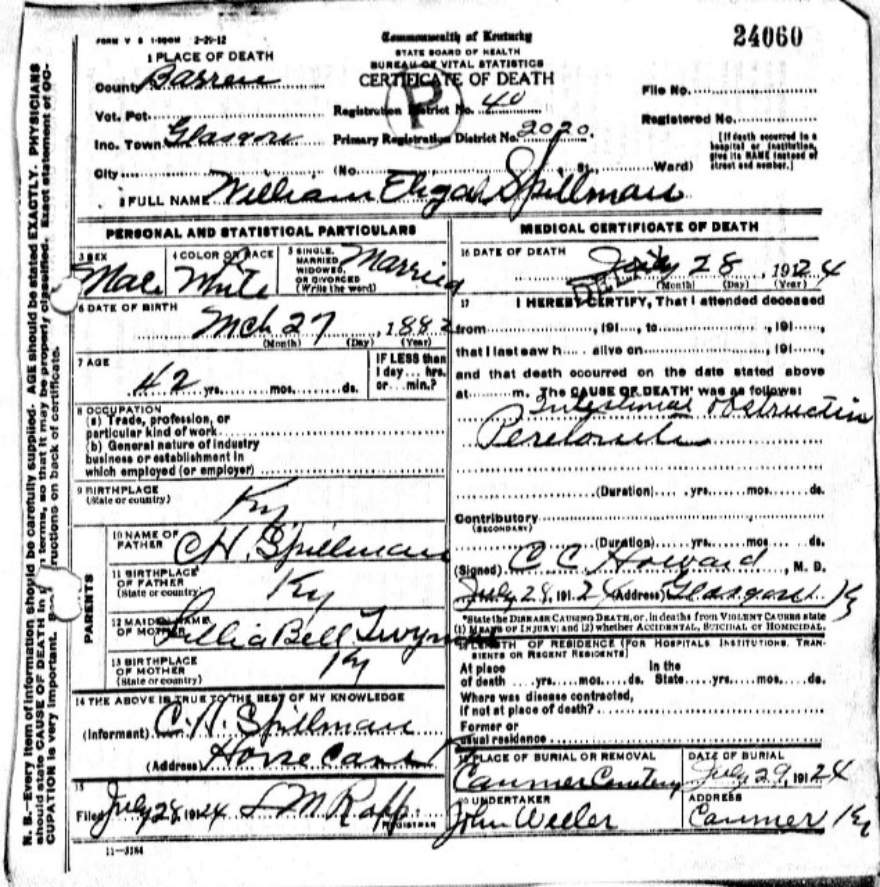 FORM V S 1-500M 2-29-12
Commonwealth of Kentucky
STATE BOARD OF HEALTH
BUREAU OF VITAL STATISTICS
CERTIFICATE OF DEATH
24060
1 PLACE OF DEATH
County Barren
Vot. Pct.
Inc. Town Glasgow
City (No. St. Ward)
Registration District No. 40
Primary Registration District No. 2020.
P
File No.
Registered No.
[If death occurred in a hospital or institution, give its NAME instead of street and number.]
2 FULL NAME William Eligah Spillman
PERSONAL AND STATISTICAL PARTICULARS
3 SEX Male
4 COLOR OR RACE White
5 SINGLE, MARRIED, WIDOWED, OR DIVORCED (Write the word) Married
6 DATE OF BIRTH
Mch 27, 1882
(Month) (Day) (Year)
7 AGE
42 yrs. mos. ds.
IF LESS than 1 day... hrs. or... min.?
8 OCCUPATION
(a) Trade, profession, or
particular kind of work
(b) General nature of industry
business or establishment in
which employed (or employer)
9 BIRTHPLACE
(State or country) Ky
PARENTS
10 NAME OF FATHER C.H. Spillman
11 BIRTHPLACE OF FATHER (State or country) Ky
12 MAIDEN NAME OF MOTHER Lillia Bell
13 BIRTHPLACE OF MOTHER (State or country) Ky
14 THE ABOVE IS TRUE TO THE BEST OF MY KNOWLEDGE
(Informant) C.H. Spillman
(Address) Horse Cave
15
Filed July 28, 1924 L M Ropp
REGISTRAR
11-3184
MEDICAL CERTIFICATE OF DEATH
16 DATE OF DEATH July 28, 1924
DELAY
(Month) (Day) (Year)
17 I HEREBY CERTIFY, That I attended deceased
from , 191 , to , 191 ,
that I last saw h alive on , 191 ,
and that death occurred on the date stated above
at m. The CAUSE OF DEATH* was as follows:
Intestinal obstruction
Peretonitis
(Duration) yrs. mos. ds.
Contributory
(SECONDARY)
(Duration) yrs. mos ds.
(Signed) C C Howard, M. D.
July 28, 1924 (Address) Glasgow Ky
*State the DISEASE CAUSING DEATH, or, in deaths from VIOLENT CAUSES state
(1) MEANS OF INJURY; and (2) whether ACCIDENTAL, SUICIDAL or HOMICIDAL.
LENGTH OF RESIDENCE (FOR HOSPITALS INSTITUTIONS, TRANSIENTS OR RECENT RESIDENTS)
At place of death yrs. mos. ds. In the State yrs. mos. ds.
Where was disease contracted,
if not at place of death?
Former or
usual residence
19 PLACE OF BURIAL OR REMOVAL
Canmer Cemetery
DATE OF BURIAL
July 29, 1924
20 UNDERTAKER
John Weeler
ADDRESS
Canmer Ky
N. B.—Every item of information should be carefully supplied. AGE should be stated EXACTLY. PHYSICIANS
should state CAUSE OF DEATH in terms, so that it may be properly classified. Exact statement of OC-
CUPATION is very important. See instructions on back of certificate.